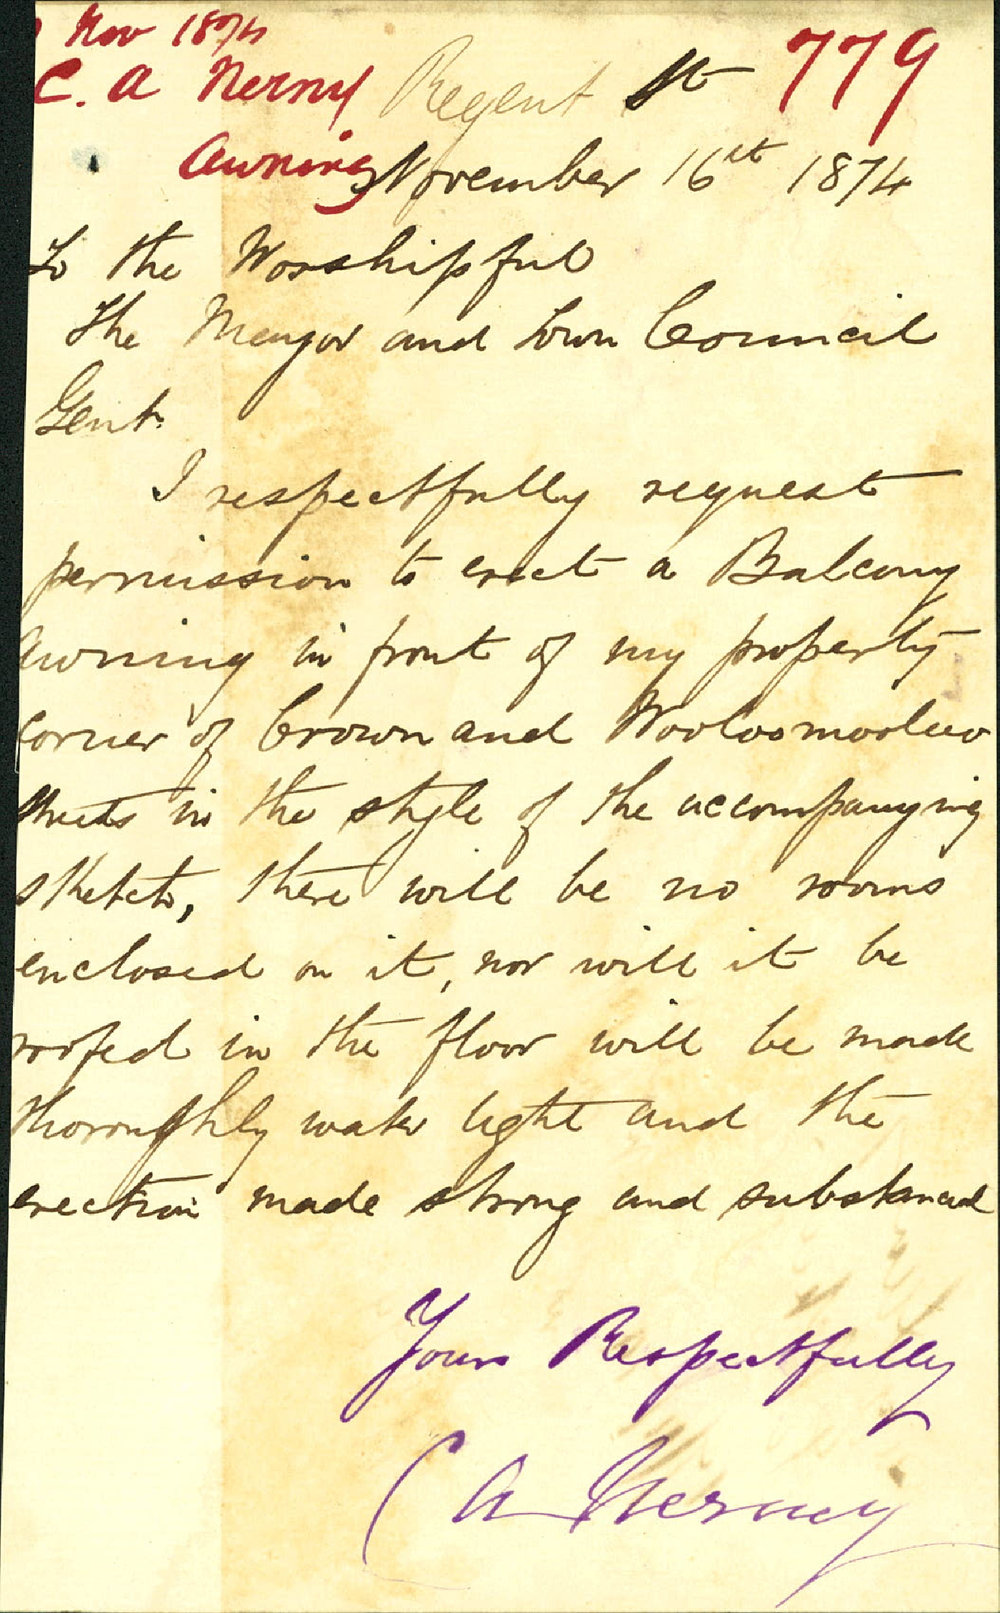 Nov 1874
C. A Nerny Regent St 779
Awning November 16th 1874
To the Worshipful
The Mayor and Town Council
Gent.
I respectfully request
permission to erect a Balcony
Awning in front of my property
corner of Crown and Woolloomooloo
streets in the style of the accompanying
sketch, there will be no rooms
enclosed on it, nor will it be
roofed in the floor will be made
thoroughly water tight and the
erection made strong and substancial
Yours Respectfully
C A Nerney